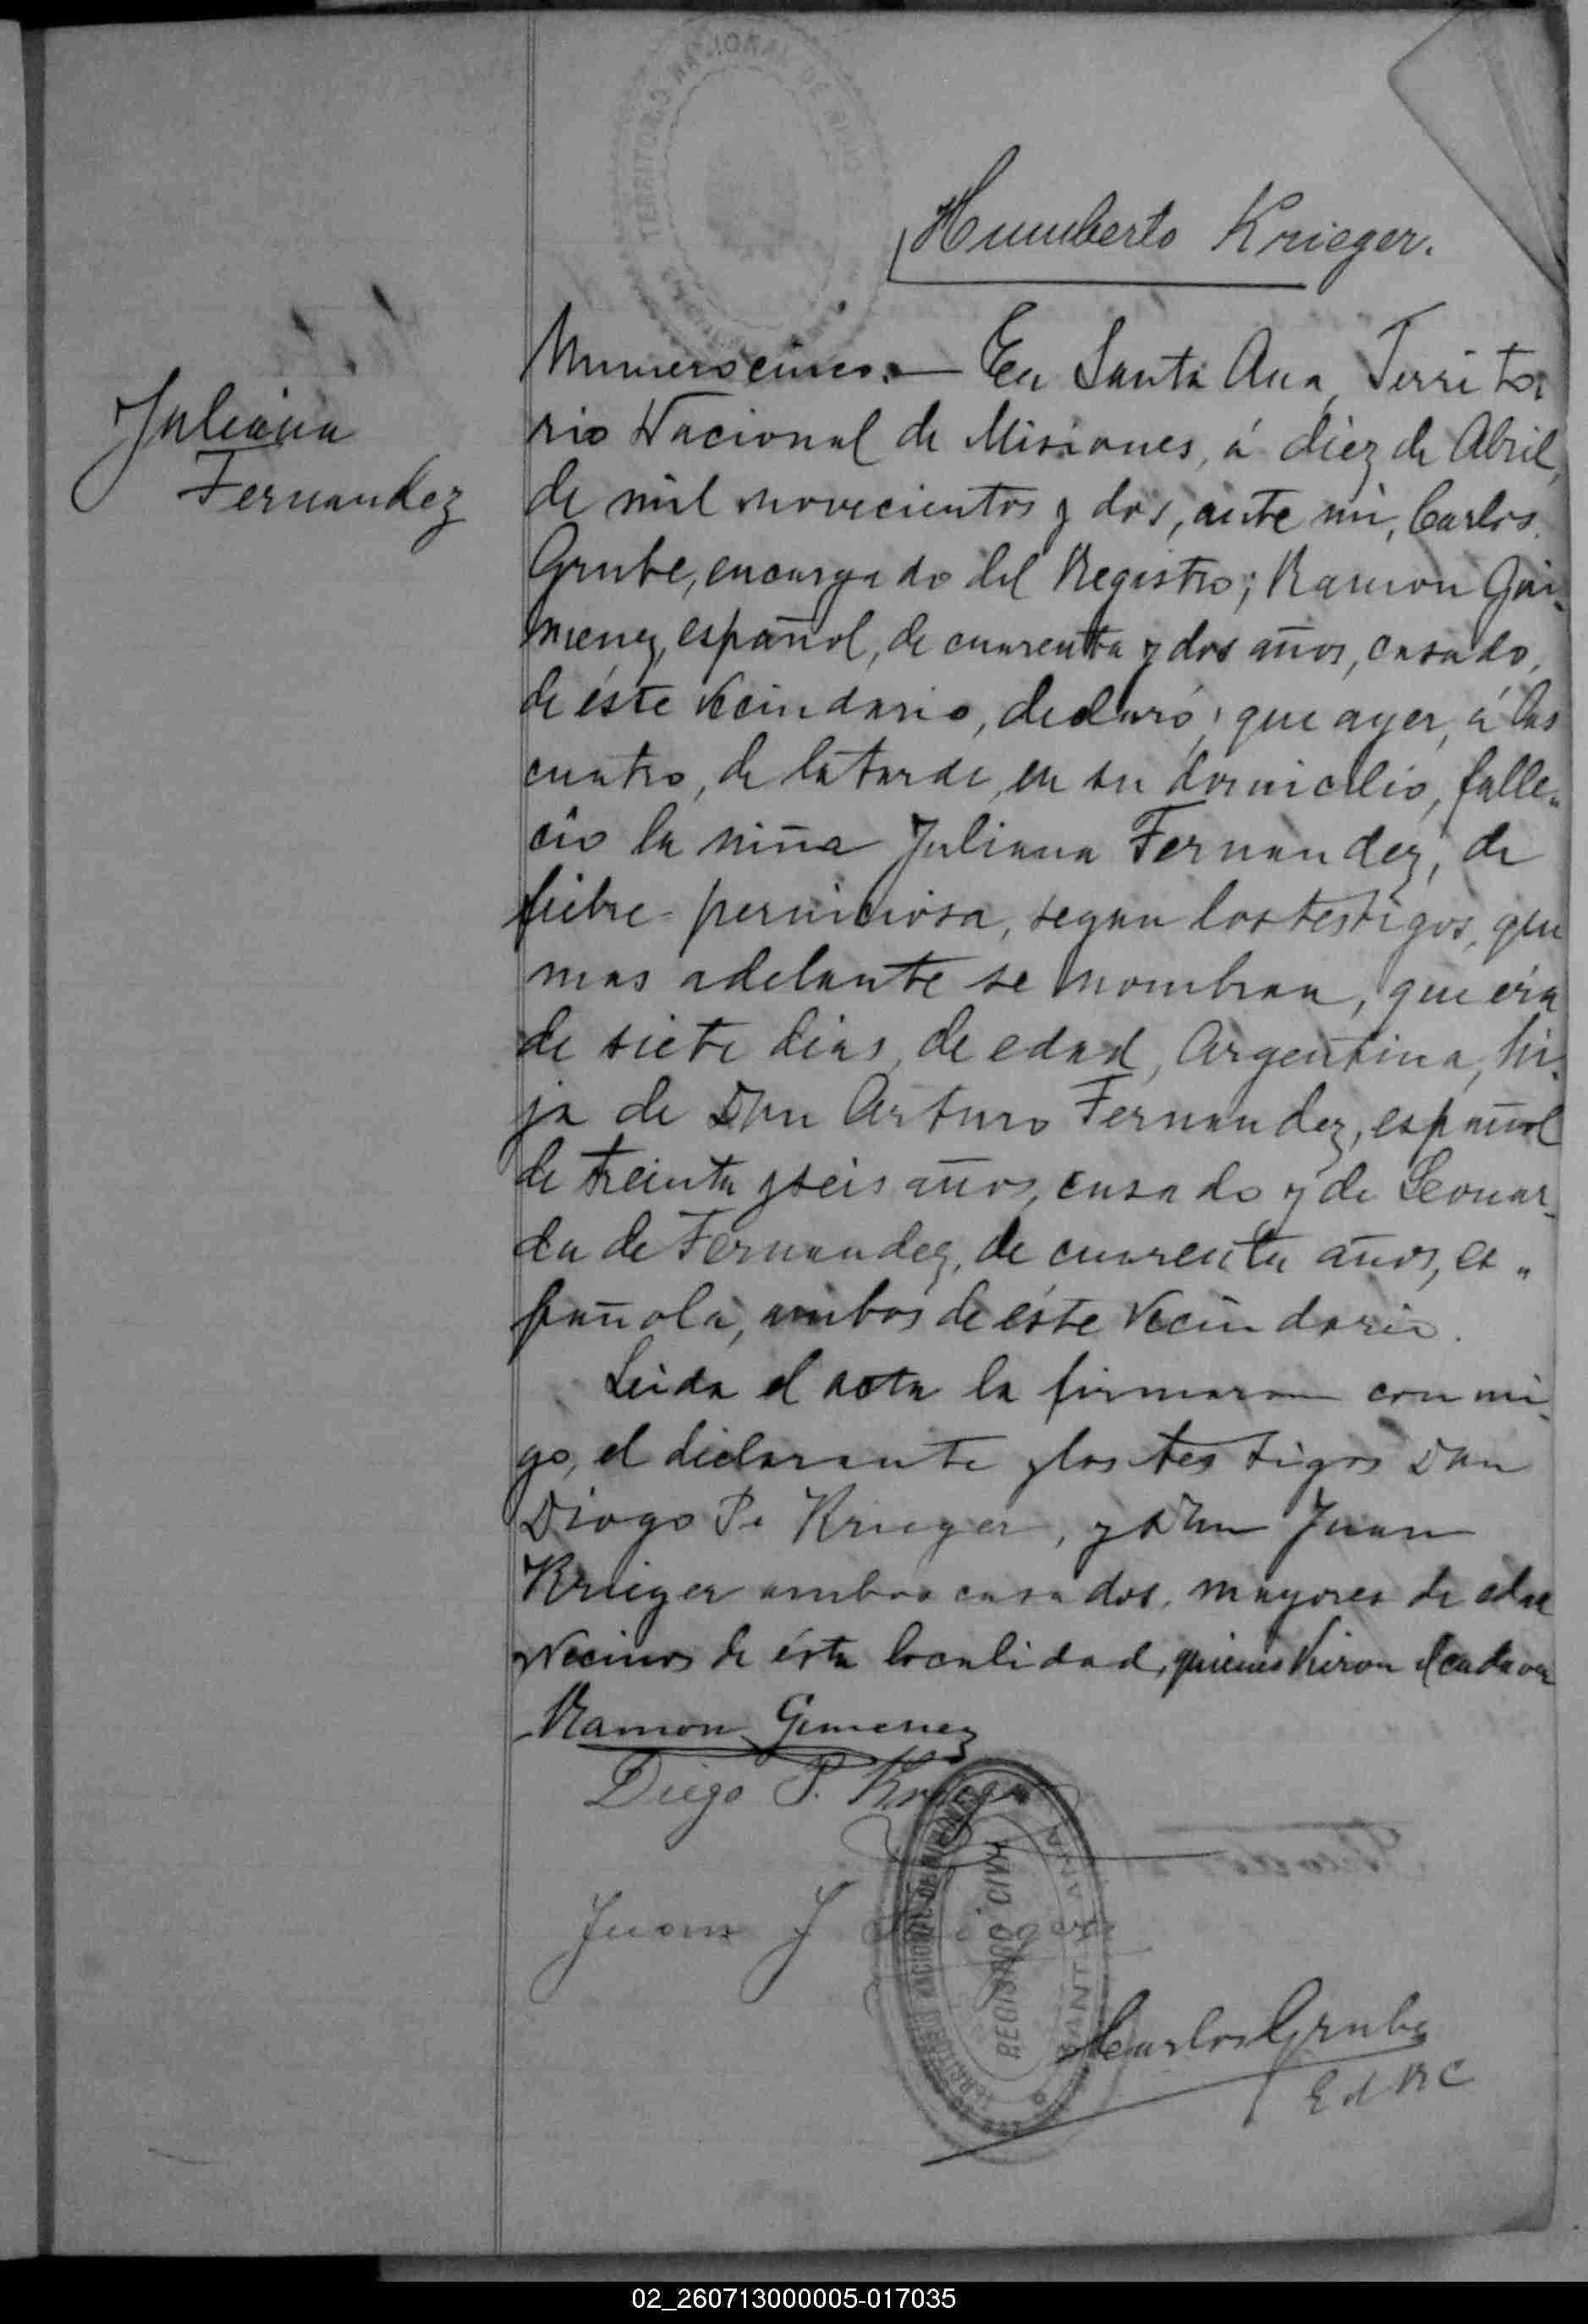 TERRITORIO NACIONAL DE MISIONES
Humberto Krieger.
Juliana
Fernandez
Numero cinco. — En Santa Ana, Territo-
rio Nacional de Misiones, á diez de Abril,
de mil novecientos y dos, ante mi, Carlos
Grube, encargado del Registro; Ramon Gui-
menez, español, de cuarenta y dos años, casado,
de éste vecindario, declaró, que ayer, á las
cuatro, de la tarde, en su domicilio, falle-
cio la niña Juliana Fernandez, de
fiebre perniciosa, segun los testigos, que
mas adelante se nombran, que éra
de siete dias, de edad, Argentina, hi-
ja de Don Arturo Fernandez, español
de treinta y seis años, casado y de Leonar-
da de Fernandez, de cuarenta años, es-
pañola, ambos de éste vecindario.
Leida el acta la firmaron con mi-
go, el declarante y los testigos Don
Diogo P. Krieger, y Don Juan
Krieger ambos casados, mayores de edad
vecinos de ésta localidad, quienes vieron el cadaver
Ramon Gimenez
Diego P. Krieger
Juan J
TERRITORIO NACIONAL DE MISIONES
REGISTRO CIVIL
SANTA ANA
Carlos Grube
E d R C
02_260713000005-017035